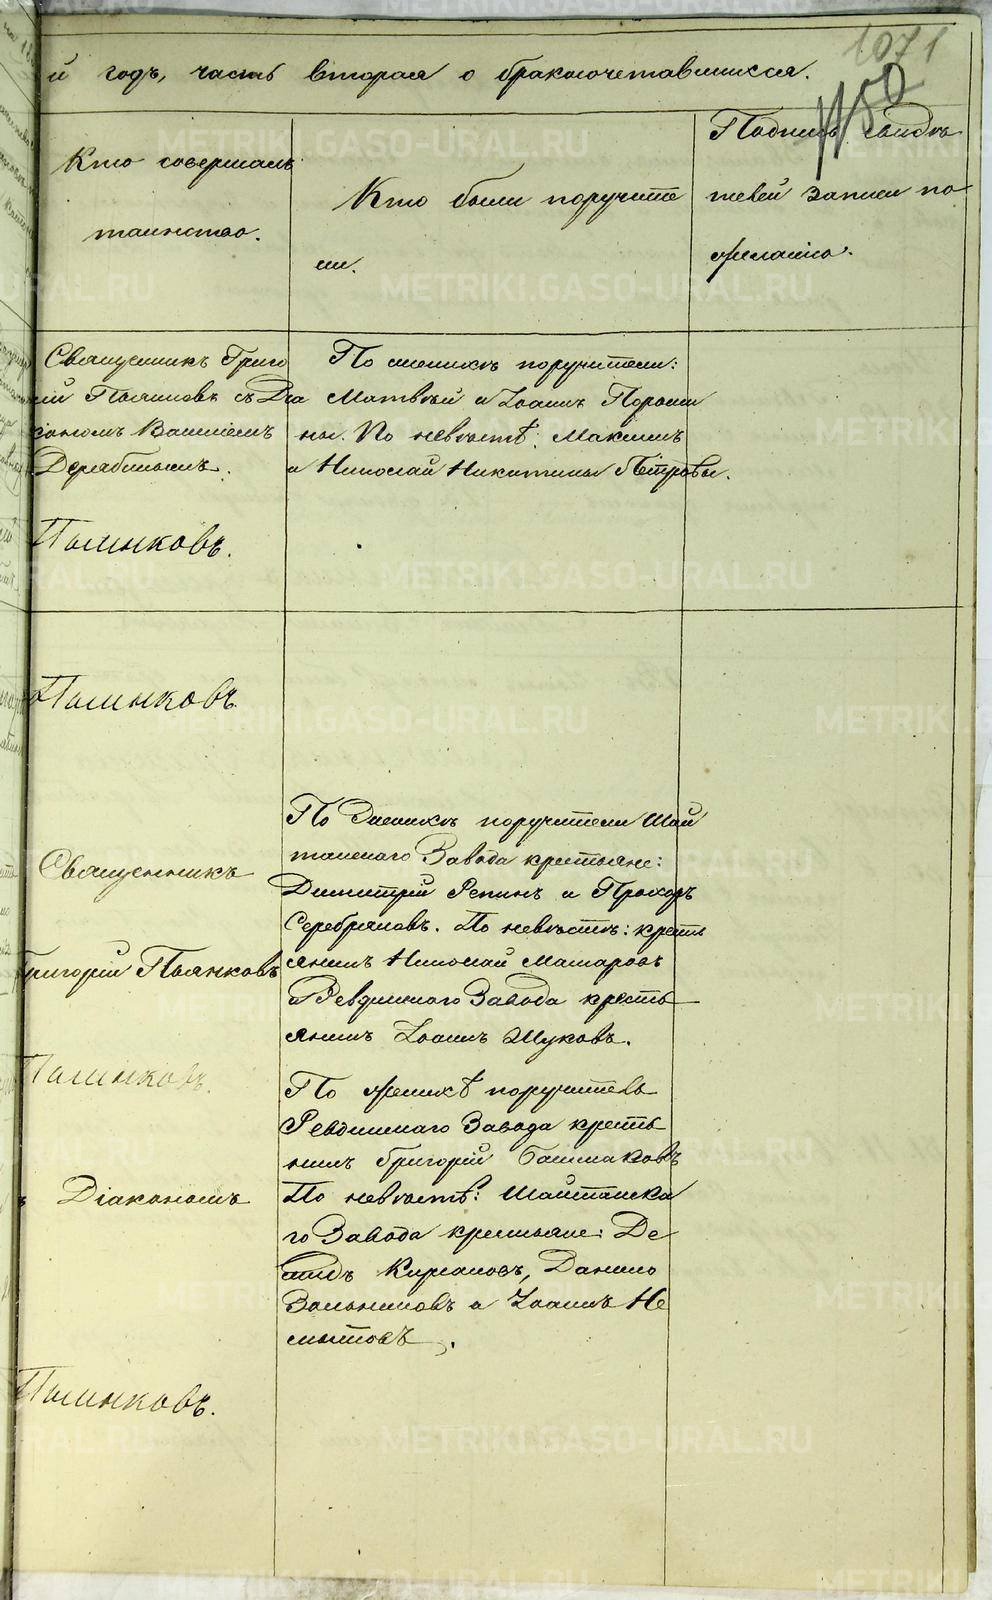 1071
1150
й годъ, часть вторая о бракосочетавшихся.
Кто совершалъ
таинство.
Кто были поручите
ли.
Подпись свидѣ
телей записи по
желанію.
Священникъ Григо
рій Пьянковъ съ Діа
кономъ Василіемъ
Дерябинымъ.
Пьянковъ.
По женихѣ поручители:
Матвѣй и Іоаннъ Порошин
ны. По невѣстѣ: Максимъ
и Николай Никитины Петровы.
Пьянковъ
Священникъ
Григорій Пьянковъ
Пьянковъ.
ъ Діакономъ
Пьянковъ.
По Женихѣ поручители Шай
танскаго Завода крестьяне:
Димитрій Репинъ и Прохоръ
Серебряковъ. По невѣстѣ: кресть
янинъ Николай Макаровъ
и Ревдинскаго Завода кресть
янинъ Іоаннъ Жуковъ.
По женихѣ поручитель
Ревдинскаго Завода кресть
нинъ Григорій Башмаковъ
По невѣстѣ: Шайтанска
го Завода крестьяне: Де
мидъ Кирпановъ, Данило
и Іоаннъ Не
мытовъ.
METRIKI.GASO-URAL.RU